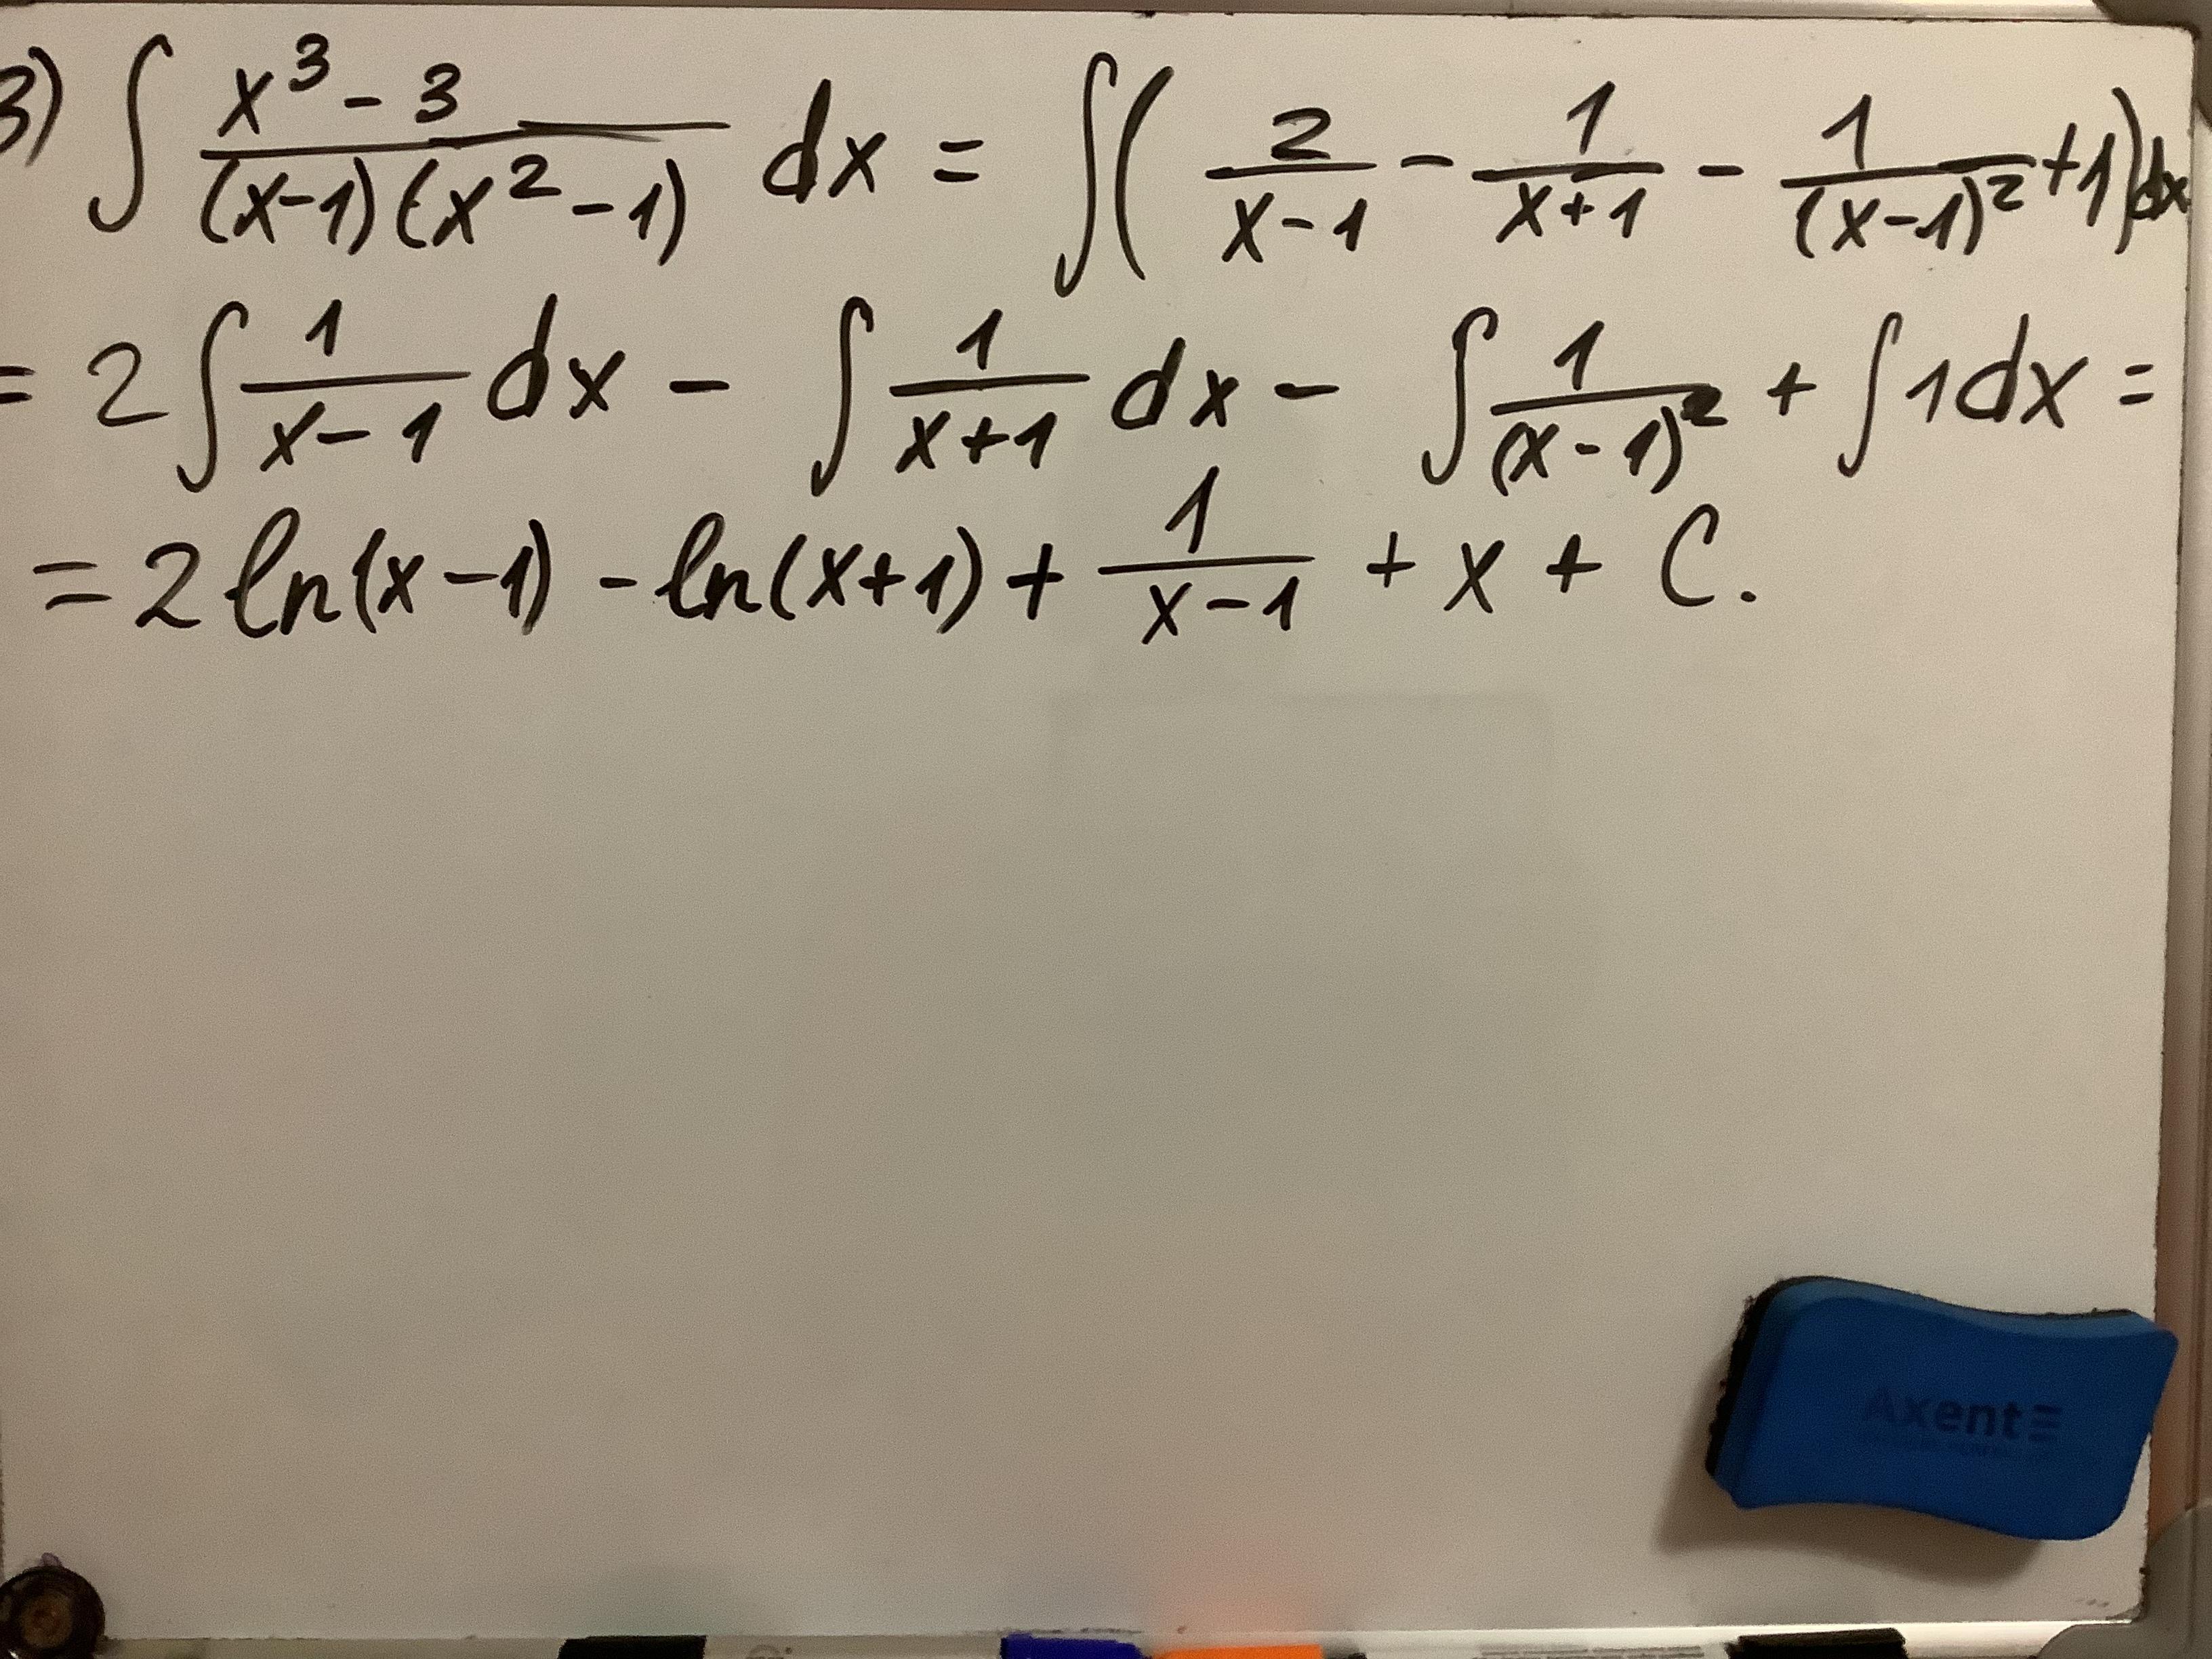 3) ∫ (x³ - 3)/((x-1)(x²-1)) dx = ∫( 2/(x-1) - 1/(x+1) - 1/(x-1)² + 1)dx
= 2∫ 1/(x-1) dx - ∫ 1/(x+1) dx - ∫ 1/(x-1)² + ∫1dx =
= 2 ln(x-1) - ln(x+1) + 1/(x-1) + x + C.
Axent